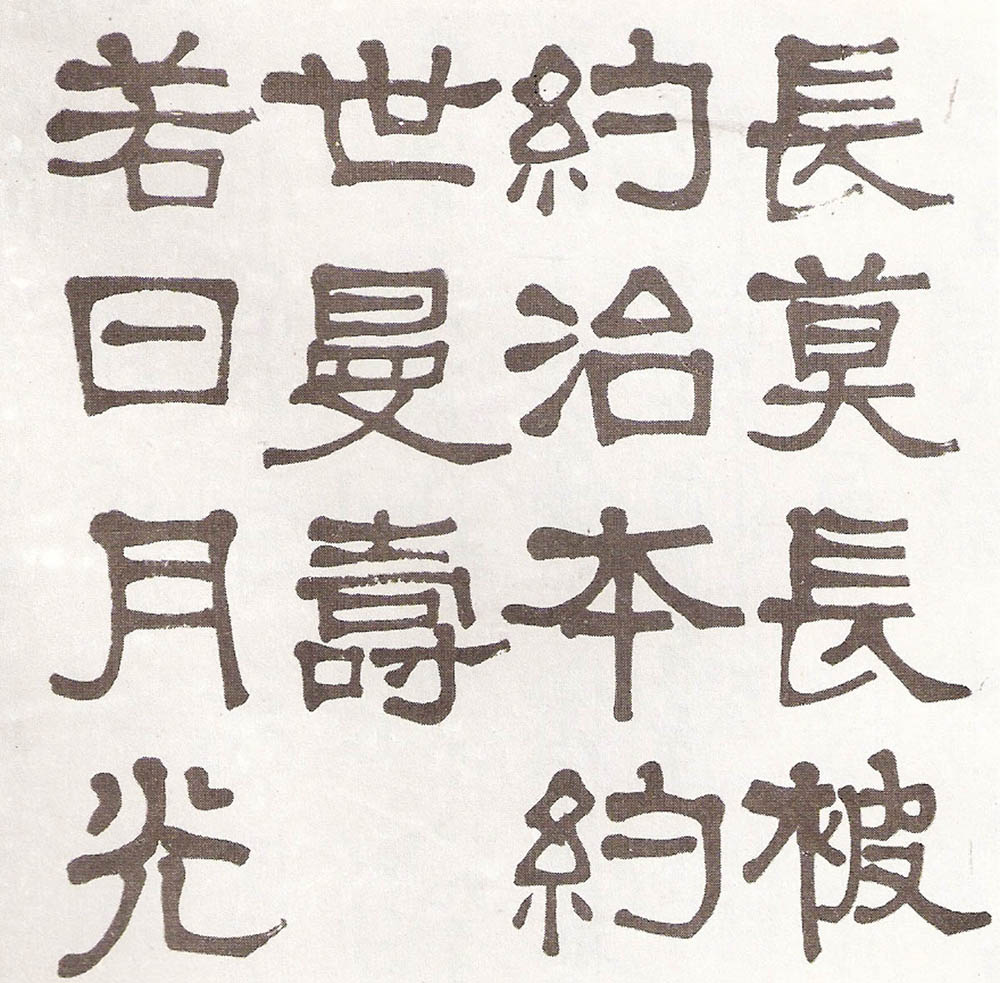 長莫長被
約治本約
世曼壽
若日月光